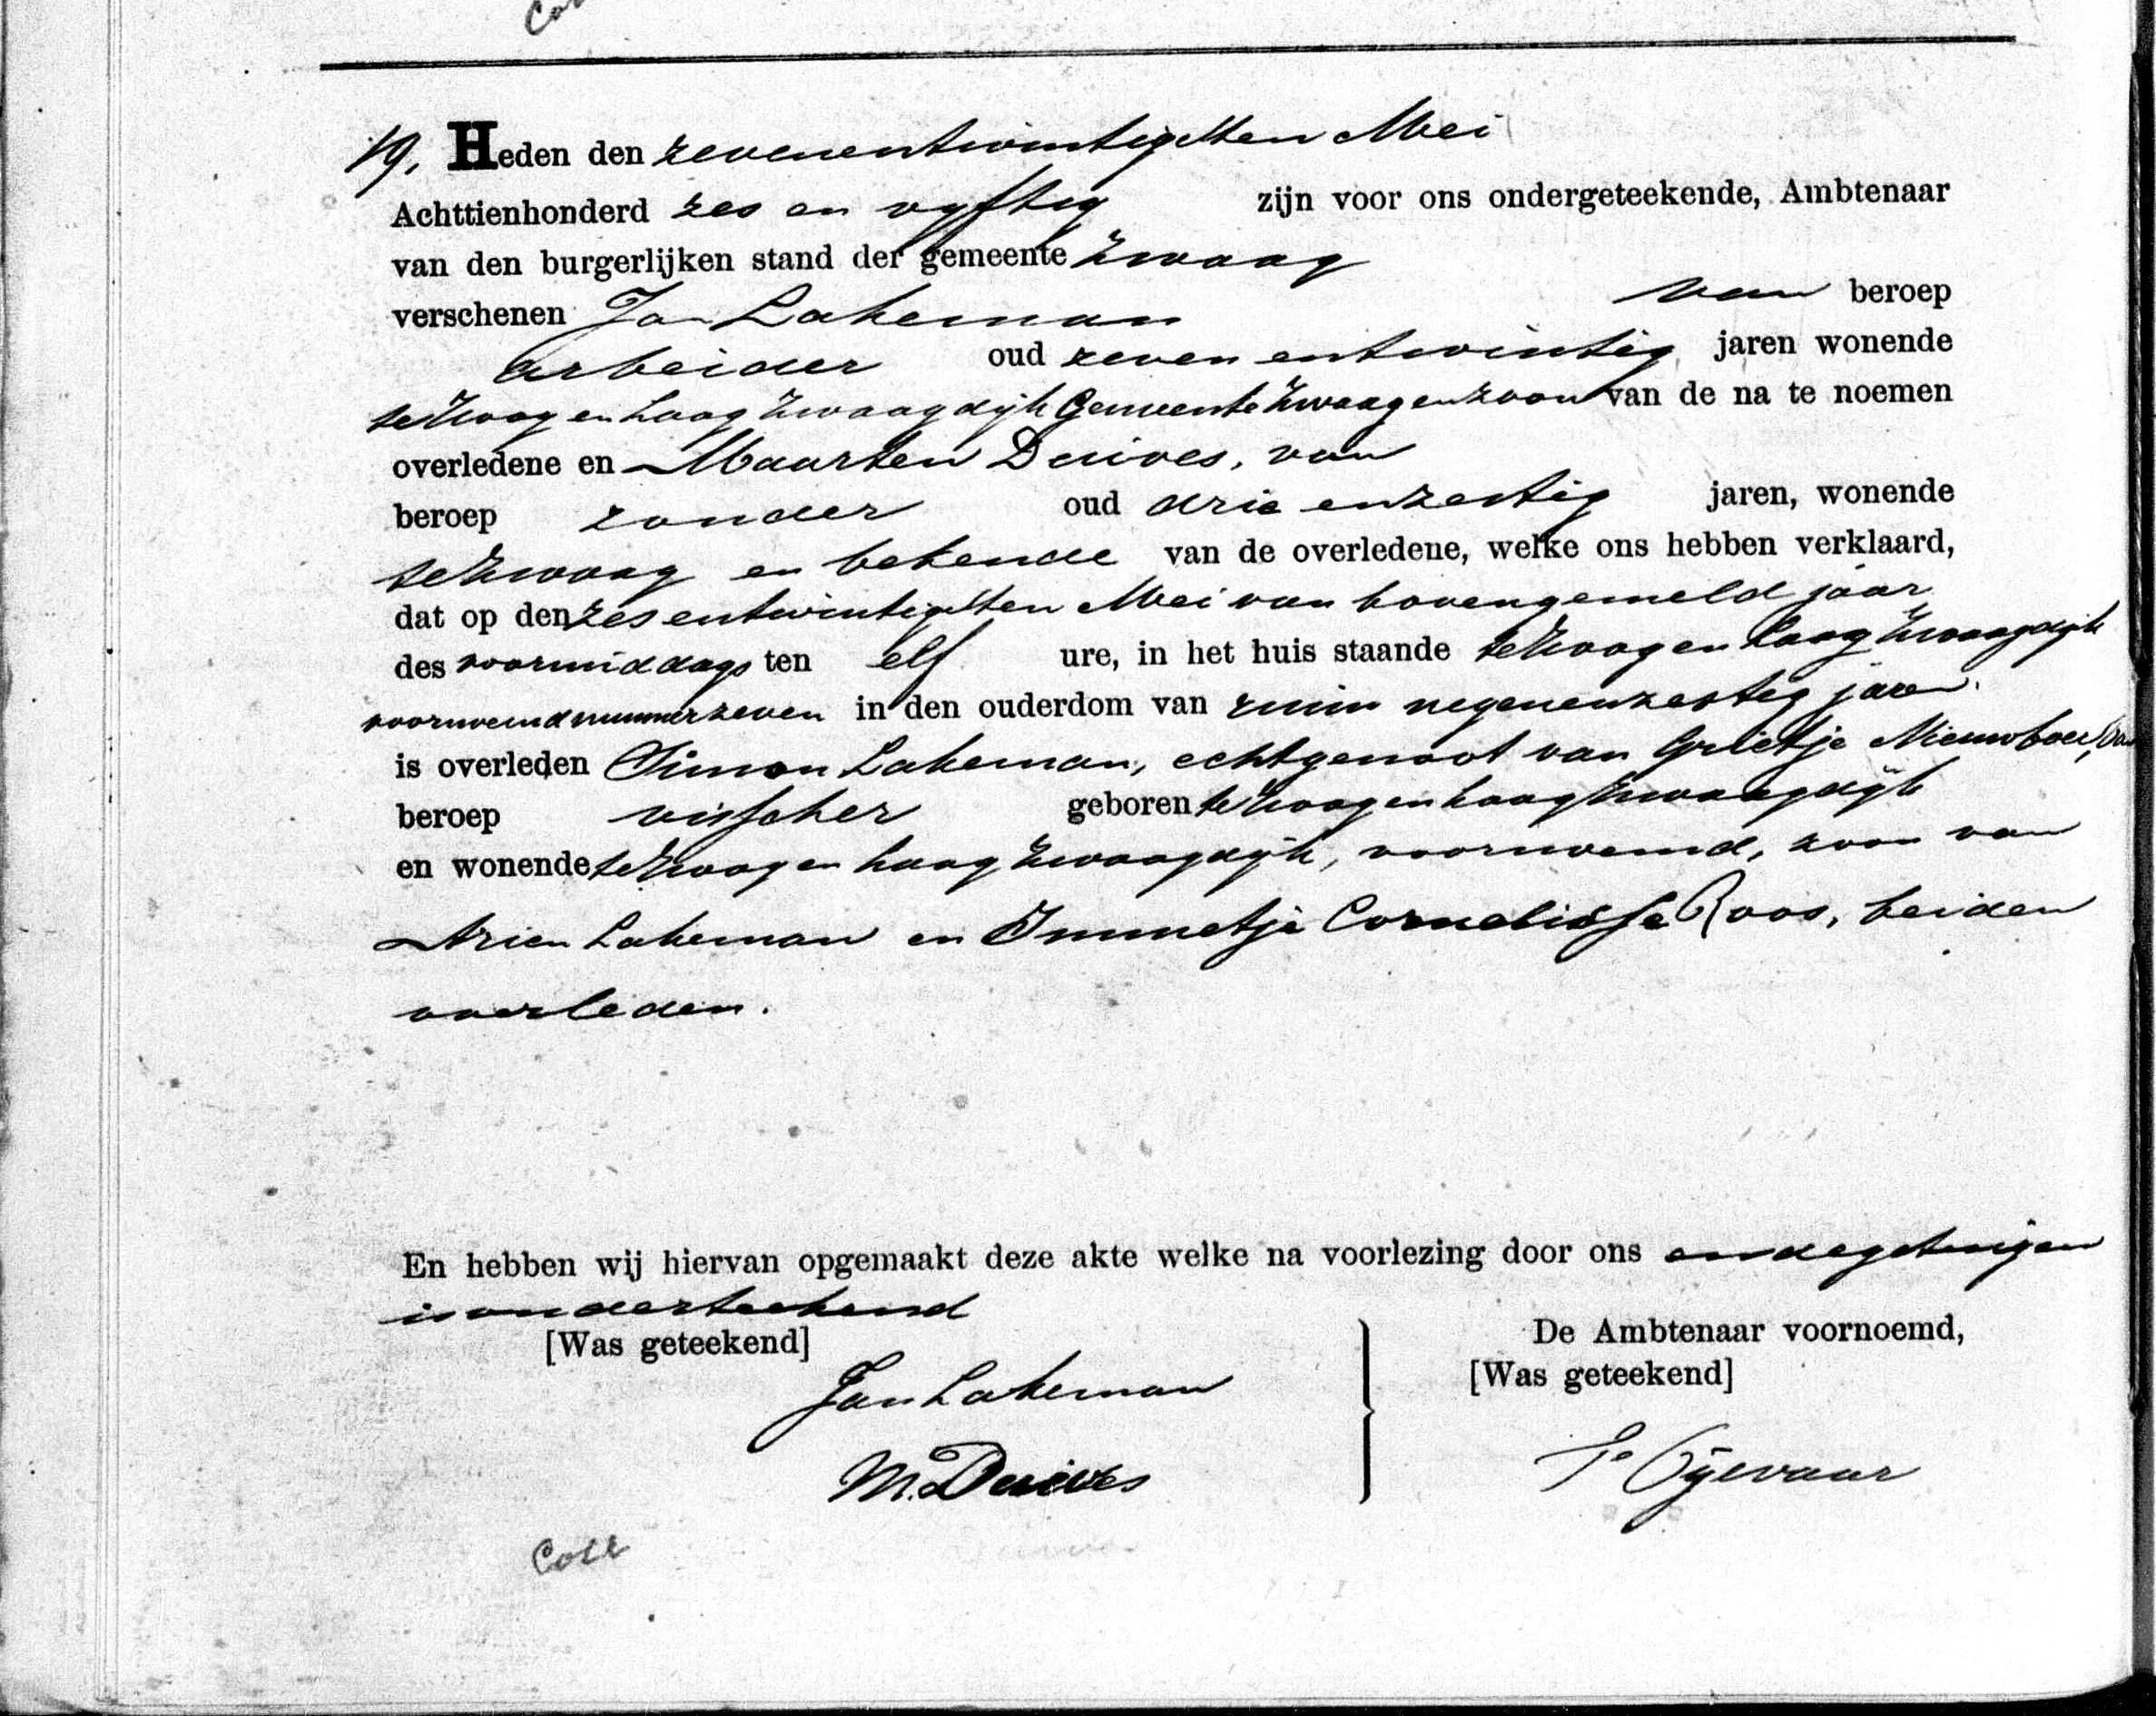 19. Heden den zevenentwintigsten Mei
Achttienhonderd zes en vyftig zijn voor ons ondergeteekende, Ambtenaar
van den burgerlijken stand der gemeente Zwaag
verschenen Jan Lakeman van beroep
arbeider oud zeven entwintig jaren wonende
te Hoog en Laag Zwaagdijk Gemeente Zwaag en zoon van de na te noemen
overledene en Maarten Duives, van
beroep zonder oud drie enzestig jaren, wonende
te Zwaag en bekende van de overledene, welke ons hebben verklaard,
dat op den zes entwintigsten Mei van bovengemeld jaar
des voormiddags ten elf ure, in het huis staande te Hoog en Laag Zwaagdijk
voornoemd nummer zeven in den ouderdom van ruim negenenzestig jaren
is overleden Simon Lakeman, echtgenoot van Grietje Nieuwboer, van
beroep visscher geboren te Hoog en Laag Zwaagdijk
en wonende te Hoog en Laag Zwaagdijk, voornoemd, zoon van
Arien Lakeman en Immetje Cornelisse Roos, beiden
overleden.
En hebben wij hiervan opgemaakt deze akte welke na voorlezing door ons en de getuigen
is onderteekend
[Was geteekend]
De Ambtenaar voornoemd,
[Was geteekend]
Jan Lakeman
M. Duives
Coll